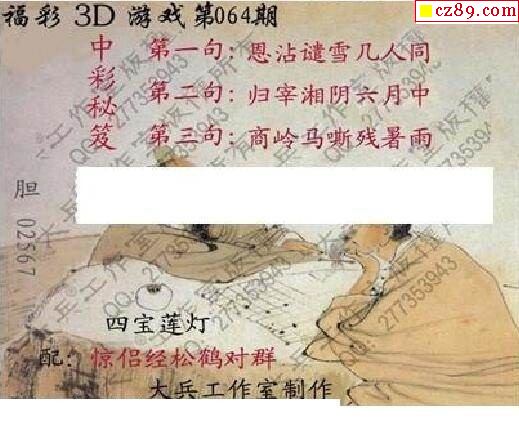 福彩 3D 游戏第064期
cz89.com
中彩秘笈
第一句：恩沾谴雪几人同
第二句：归宰湘阴六月中
第三句：商岭马嘶残暑雨
胆 02567
四宝莲灯
配：惊侣经松鹤对群
大兵工作室制作
大兵工作室版权所有
QQ：277353943